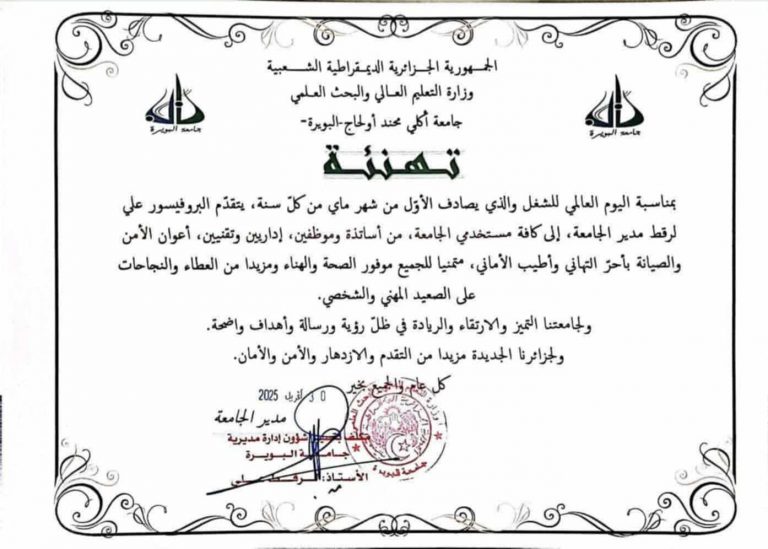 الجمهورية الجزائرية الديمقراطية الشعبية
وزارة التعليم العالي والبحث العلمي
جامعة أكلي محند أولحاج-البويرة-
جامعة البويرة
جامعة البويرة
تهنئة
بمناسبة اليوم العالمي للشغل والذي يصادف الأوّل من شهر ماي من كلّ سنة، يتقدّم البروفيسور علي
لرقط مدير الجامعة، إلى كافة مستخدمي الجامعة، من أساتذة وموظفين، إداريين وتقنيين، أعوان الأمن
والصيانة بأحرّ التهاني وأطيب الأماني، متمنيا للجميع موفور الصحة والهناء ومزيدا من العطاء والنجاحات
على الصعيد المهني والشخصي.
ولجامعتنا التميز والارتقاء والريادة في ظلّ رؤية ورسالة وأهداف واضحة.
ولجزائرنا الجديدة مزيدا من التقدم والازدهار والأمن والأمان.
كل عام والجميع بخير
30 أفريل 2025
مدير الجامعة
مكلف شؤون إدارة مديرية
جامعة البويرة
الأستاذ: لرقط علي
جامعة البويرة